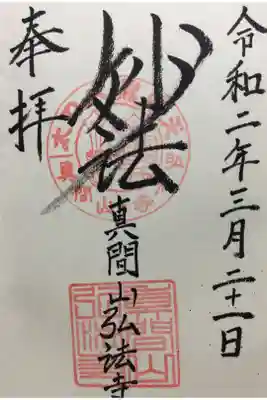 令和二年三月二十一日
妙法
真間山弘法寺
奉拝